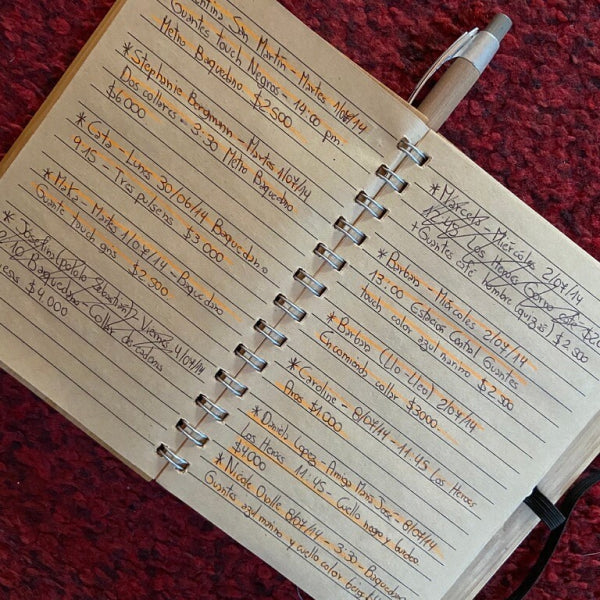 San Martín - Martes 1/07/14
Guantes touch Negros - 14:00 pm
Metro Baquedano $2500
* Stephanie Bergmann - Martes 1/07/14
Dos collares - 3:30 Metro Baquedano
$6000
* Cata - Lunes 30/06/14 Baquedano
9:15 - Tres pulseras $3.000
* Maka - Martes 1/07/14 - Baquedano
Guante touch gris $2.500
* Josefina (polola Sebastian) - Viernes 4/07/14
Baquedano - Collar de cadenas
$4.000
* Marcela - Miércoles 2/07/14
Los Heroes Gorro
+ Guantes este hombre (quizás) $2.500
* Barbara - Miércoles 2/07/14
13:00 Estación Central Guantes
touch color azul marino $2.500
* Barbara (Llo-Lleo) 2/07/14
Encomienda collar $3000
* Caroline - 8/07/14 - 11:45 Los Heroes
Aros $1.000
* Daniela Lopez - Amiga María José - 8/07/14
Los Heroes 11:45 - Cuello negro y burdeo
$4000
* Nicole Ovalle 8/07/14 - 3:30 - Baquedano
Guantes azul marino y cuello color beige